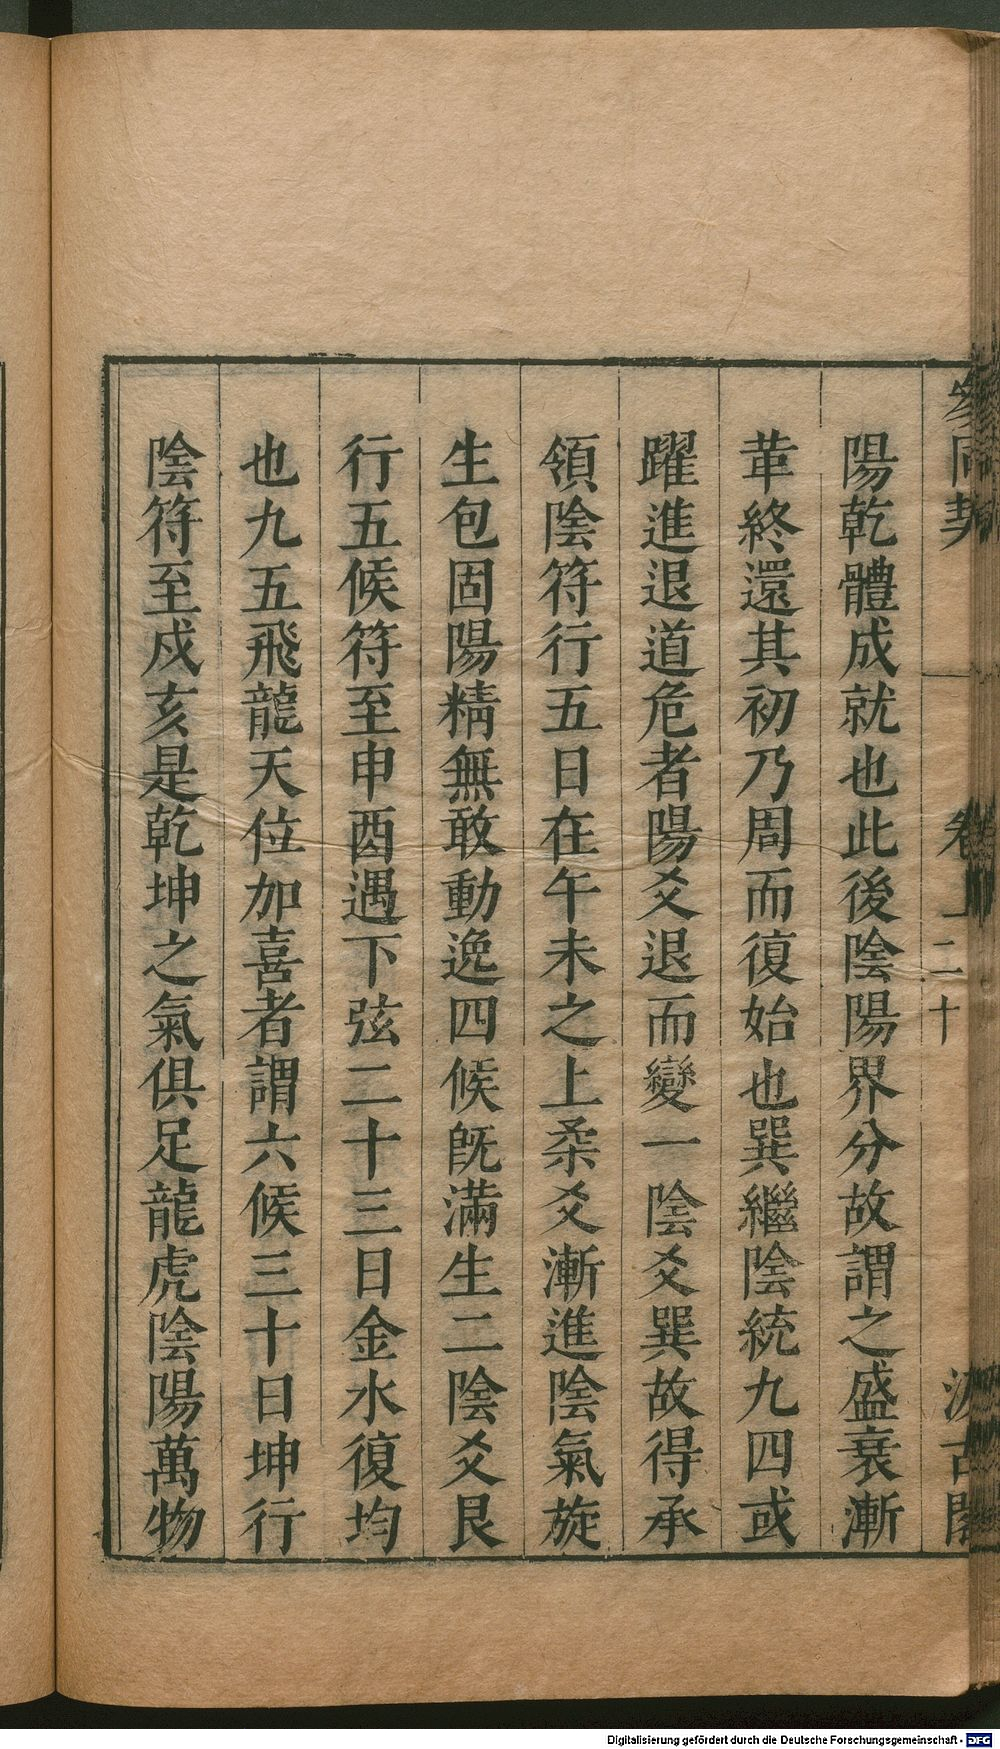 參同契 卷上 二十 汲古閣
陽乾體成就也此後陰陽界分故謂之盛衰漸
革終還其初乃周而復始也巽繼陰統九四或
躍進退道危者陽爻退而變一陰爻巽故得承
領陰符行五日在午未之上柔爻漸進陰氣旋
生包固陽精無敢動逸四候旣滿生二陰爻艮
行五候符至申酉遇下弦二十三日金水復均
也九五飛龍天位加喜者謂六候三十日坤行
陰符至戍亥是乾坤之氣俱足龍虎陰陽萬物
Digitalisierung gefördert durch die Deutsche Forschungsgemeinschaft - DFG